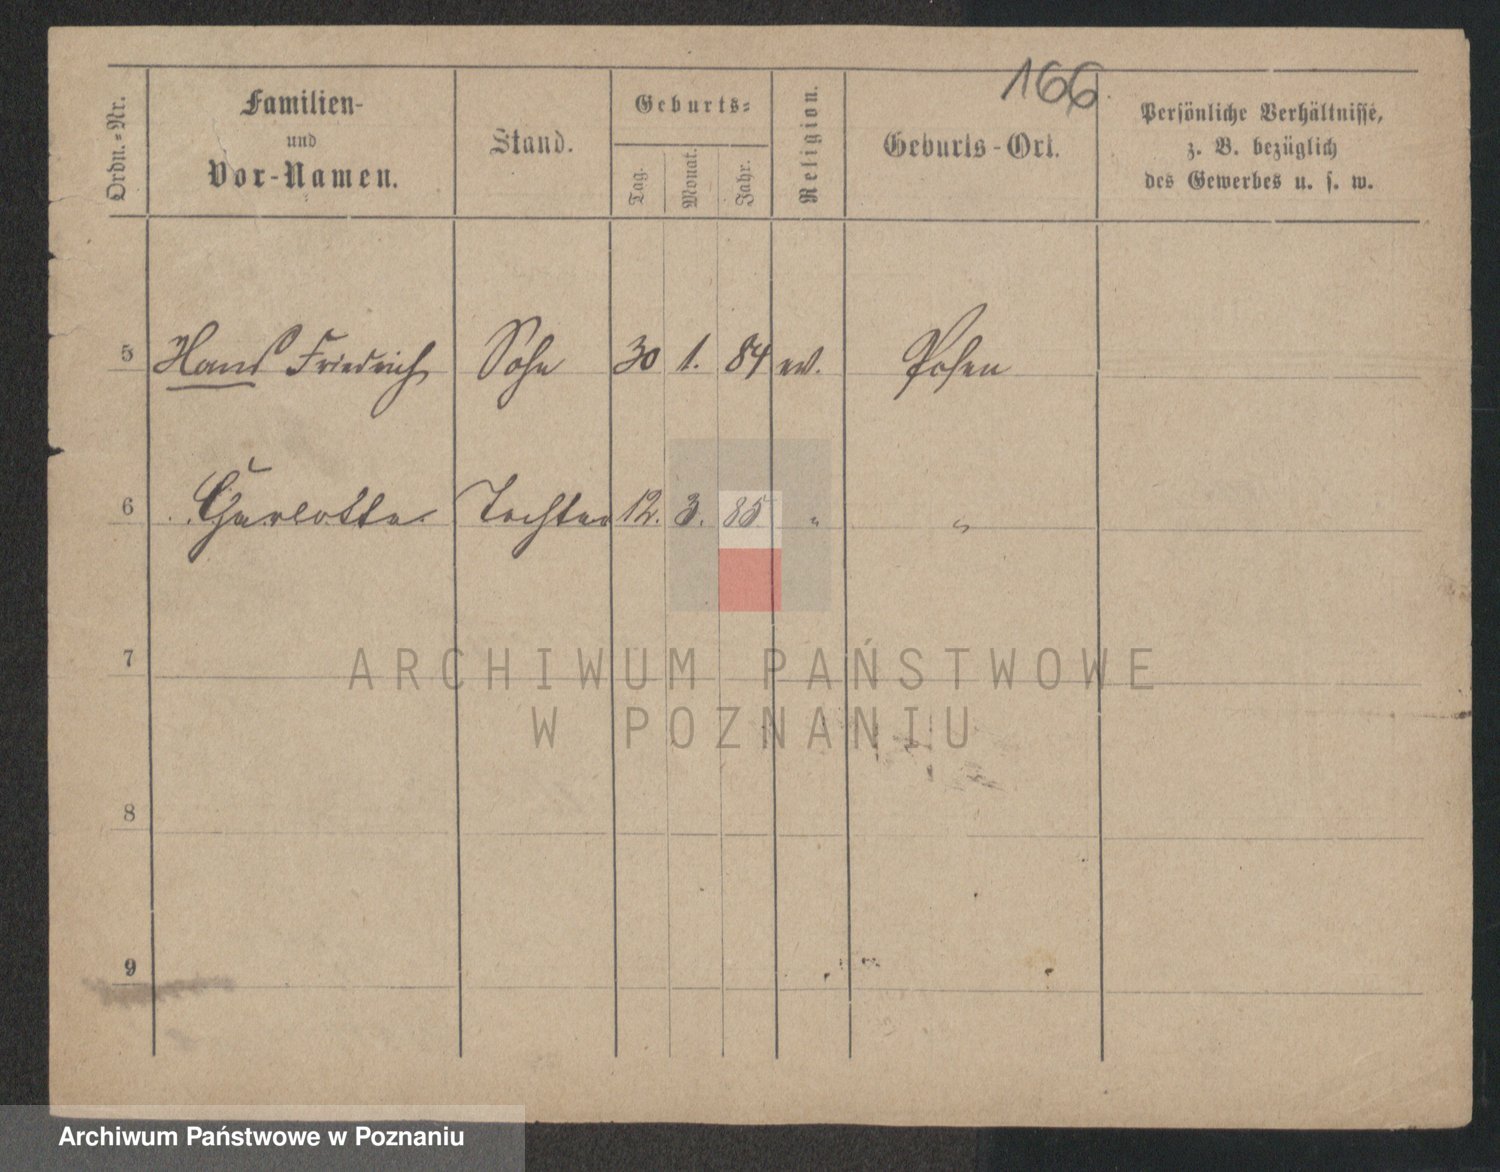 166.
Ordn.-Nr.
Familien-
und
Vor-Namen.
Stand.
Geburts-
Tag.
Monat.
Jahr.
Religion.
Geburts-Ort.
Persönliche Verhältnisse,
z. B. bezüglich
des Gewerbes u. s. w.
5 Hans Friedrich Sohn 30 1. 84 ev. Posen
6 Charlotte Tochter 12. 3. 85 " "
7
8
9
ARCHIWUM PAŃSTWOWE
W POZNANIU
Archiwum Państwowe w Poznaniu